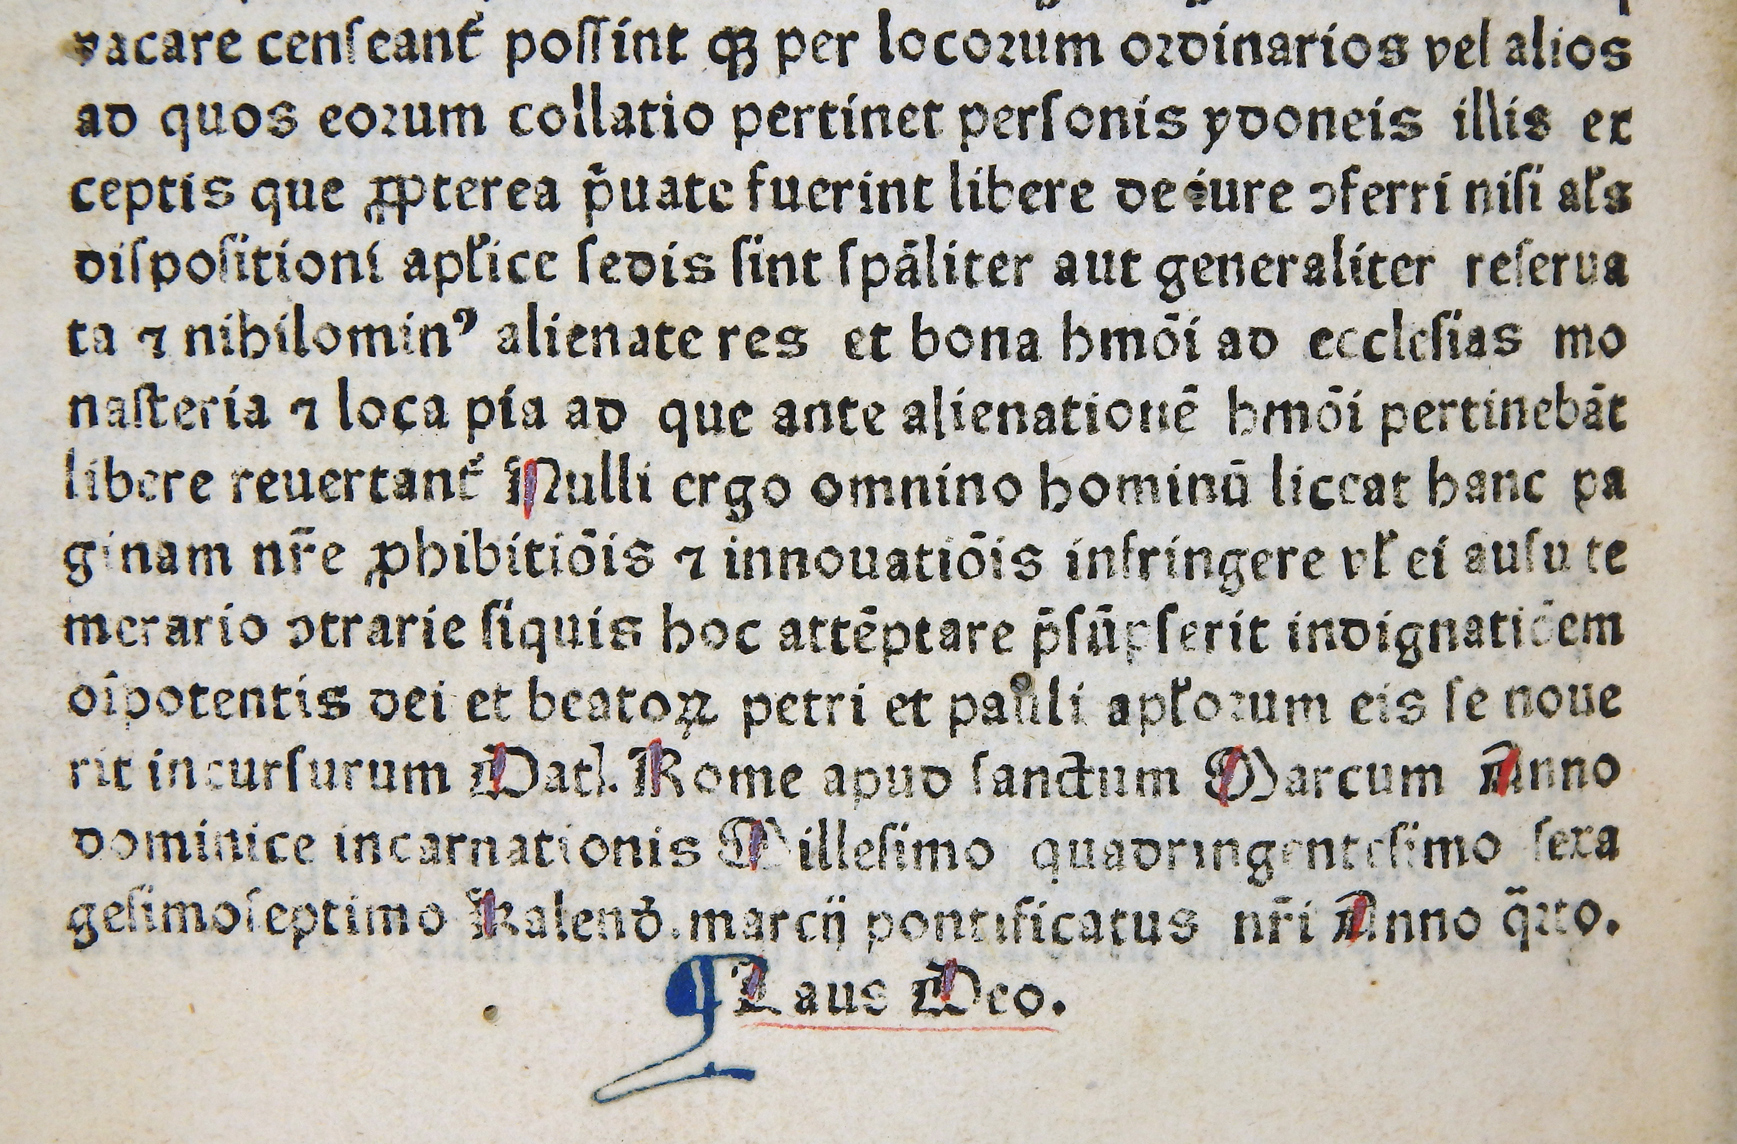 vacare censeant᷑ possint qꝫ per locorum ordinarios vel alios
ad quos eorum collatio pertinet personis ydoneis illis ex
ceptis que ꝓpterea p̄uate fuerint libere de iure ↄferri nisi al̓s
dispositioni apl̓ice sedis sint sp̄aliter aut generaliter reserua
ta ⁊ nihilominꝰ alienate res et bona hmōi ad ecclesias mo
nasteria ⁊ loca pia ad que ante alienationē hmōi pertinebāt
libere reuertant᷑ Nulli ergo omnino hominū liceat hanc pa
ginam nr̄e ꝓhibitiōis ⁊ innouatiōis infringere vl̓ ei ausu te
merario ↄtrarie siquis hoc attēptare p̄sūpserit indignatiōem
oīpotentis dei et beatoꝝ petri et pauli apl̓orum eis se noue
rit incursurum Datl. Rome apud sanctum Marcum Anno
dominice incarnationis Millesimo quadringentesimo sexa
gesimoseptimo Kalend̓. marcij pontificatus nr̄i Anno q̄rto.
¶ Laus Deo.